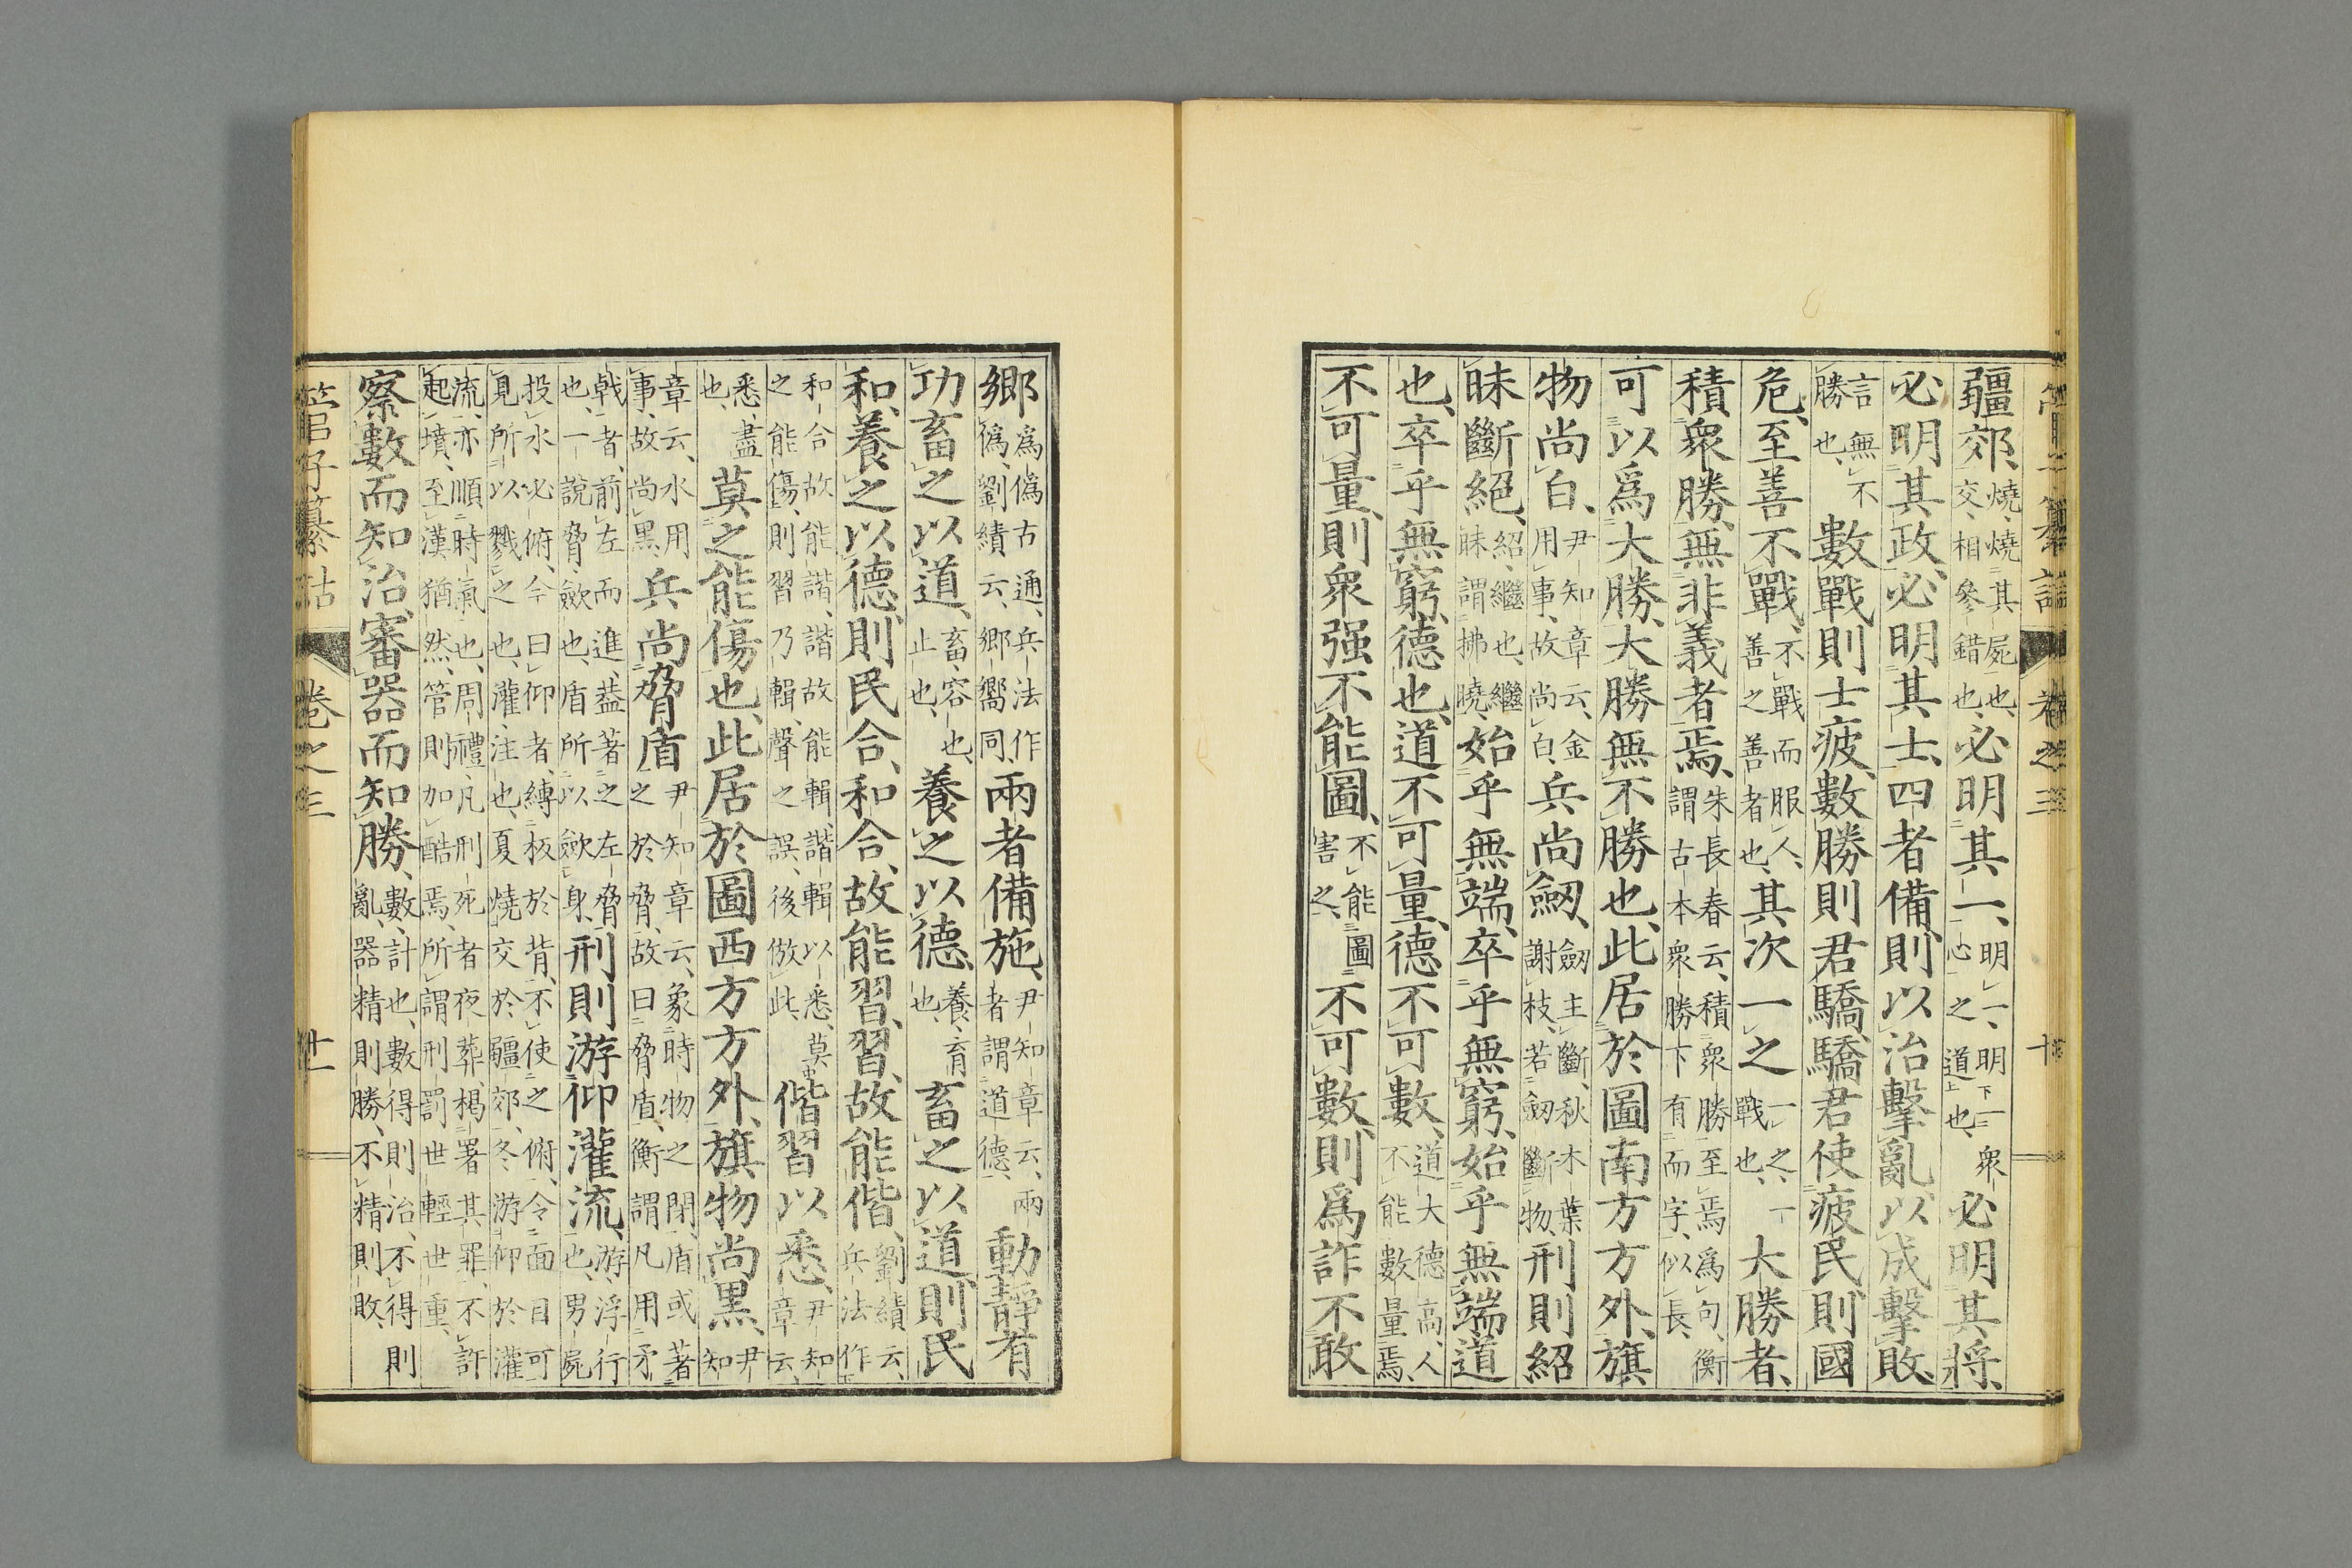 管子纂詁 卷之三
疆郊、燒、燒其屍也、交、相參錯也、必明其一、明一、明一衆心之道也、必明其將、
必明其政、必明其士、四者備、則以治擊亂、以成擊敗、
言無不勝也、數戰則士疲、數勝則君驕、驕君使疲民、則國
危、至善不戰、不戰而服人、善之善者也、其次一之、一之、一戰也、大勝者、
積衆勝、無非義者焉、朱長春云、積衆勝至焉爲句、衡謂古本衆勝下有而字、似長、
可以爲大勝、大勝無不勝也、此居於圖南方方外、旗
物尚白、尹知章云、金用事、故尚白、兵尚劔、劔主斷、秋木葉謝枝、若劔斷物、刑則紹
昧斷絕、紹、繼也、繼昧謂拂曉、始乎無端、卒乎無窮、始乎無端道
也、卒乎無窮、德也、道不可量、德不可數、道大德高、人不能數量焉、
不可量、則衆强不能圖、不能圖害之、不可數、則爲詐不敢
鄉、爲僞古通、兵法作僞、劉績云、鄉嚮同、兩者備施、尹知章云、兩者謂道德、動靜有
功、畜之以道、畜、容也、止也、養之以德、養、育也、畜之以道、則民
和、養之以德、則民合、和合、故能習、習、故能偕、劉績云、兵法作
和合故能諧、諧故能輯、諧輯以悉、莫之能傷、則習乃輯、聲之誤、後倣此、偕習以悉、尹知章云、
悉、盡也、莫之能傷也、此居於圖西方方外、旗物尚黑、尹知
章云、水用事、故尚黑、兵尚脅盾、尹知章云、象時物之閉、盾或著之於脅、故曰脅盾、衡謂凡用矛
戟者、前左而進、葢著之左脅也、一說脅、歛也、盾所以歛身、刑則游仰灌流、游、浮行也、男屍
投水必俯、今曰仰者、縛板於背、不使之俯、令面目可見、所以戮之也、灌、注也、夏燒交於疆郊、冬游仰於灌
流、亦順時氣也、周禮、凡刑死者夜葬、楬署其罪、不許起墳、至漢猶然、管則加酷焉、所謂刑罰世輕世重、
察數而知治、審器而知勝、數、計也、數得則治、不得則亂、器精則勝、不精則敗、
管子纂詁 卷之三 廿一